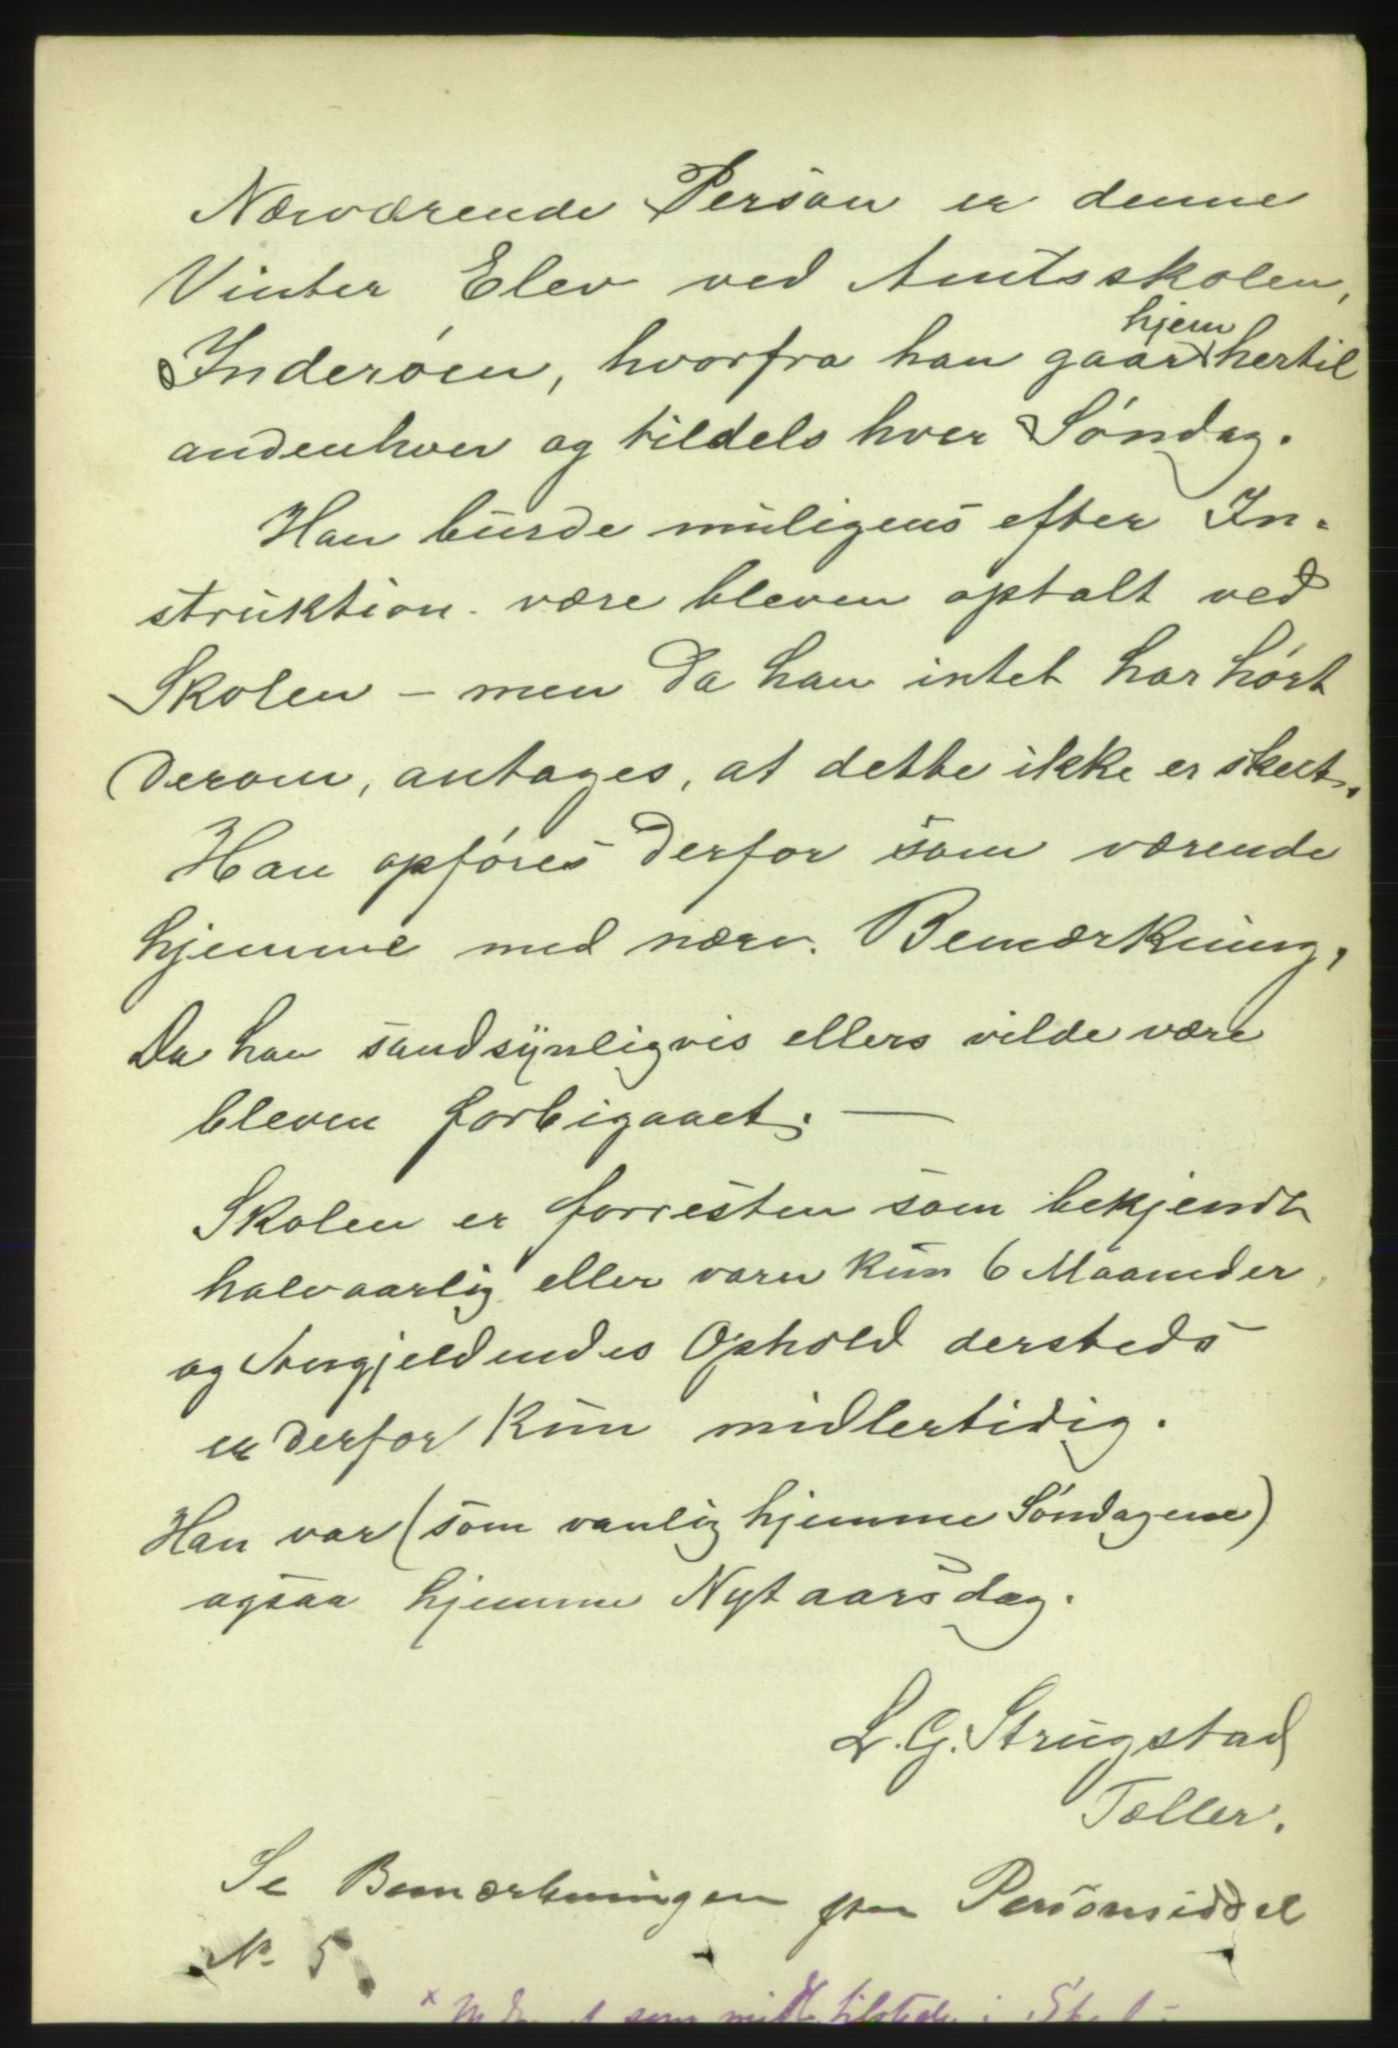 Nærværende Person er denne
Vinter Elev ved Amtsskolen,
Inderøen, hvorfra han gaar hjem hertil
andenhver og tildels hver Søndag.
Han burde muligens efter In-
struktion være bleven optalt ved
Skolen – men da han intet har hørt
derom, antages, at dette ikke er skeet.
Han opføres derfor som værende
hjemme med nærv. Bemærkning,
da han sandsynligvis ellers vilde være
bleven forbigaaet. —
Skolen er forresten som bekjendt
halvaarlig eller varer kun 6 Maaneder,
og Angjeldendes Ophold dersteds
er derfor kun midlertidig.
Han var (som vanlig hjemme Søndagene)
ogsaa hjemme Nytaarsdag.
L. G. Strugstad
Tæller.
Se Bemærkningen paa Personsiddel
No 5.